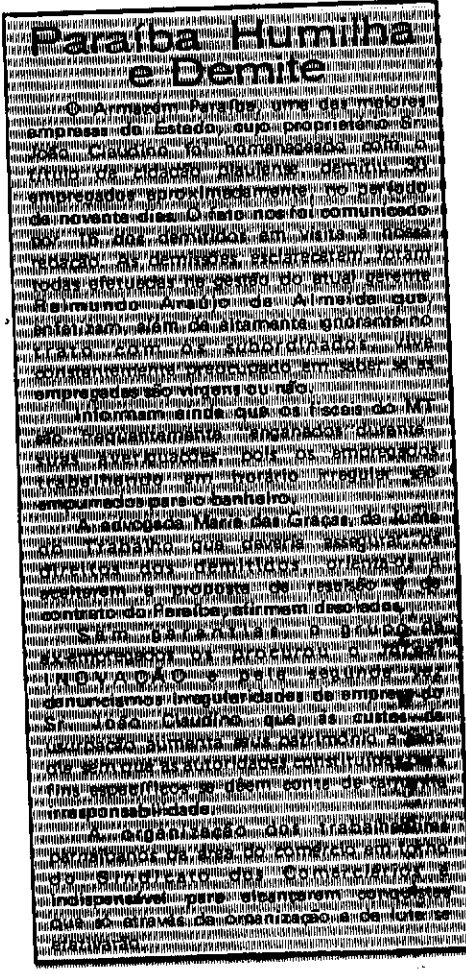 Paraíba Humilha
e Demite
O Armazém Paraíba, uma das maiores
empresas do Estado, cujo proprietário Sr.
João Claudino foi homenageado com o
título de cidadão piauiense, demitiu 30
empregados aproximadamente, no período
de noventa dias. O fato nos foi comunicado
por 16 dos demitidos em visita a nossa
redação. As demissões esclareceram, foram
todas efetuadas na gestão do atual gerente
Raimundo Araújo de Almeida que,
enfatizam, além de altamente ignorante no
trato com os subordinados, vive
constantemente preocupado em saber se as
empregadas são virgens ou não.
Informam ainda que os fiscais do MT
são frequentemente enganados durante
suas averiguações, pois os empregados
trabalhando em horário irregular são
empurrados para o banheiro.
A advogada Maria das Graças, da Junta
do Trabalho que deveria assegurar os
direitos dos demitidos, orientava a
aceitarem a proposta de rescisão de
contrato do Paraíba, afirmam desolados.
Sem garantias, o grupo de
exempregados os procurou o
INOVAÇÃO e pela segunda vez
denunciamos irregularidades da empresa do
Sr. João Claudino que, as custas da
usurpação aumenta seus patrimônio a cada
dia sem que as autoridades constituídas
fins específicos se dêem conta de tamanha
irresponsabilidade.
A organização dos trabalhadores
parnaibanos da área do comércio em torno
do Sindicato dos Comerciários é
indispensável para alcançarem conquistas
que só através da organização e da luta se